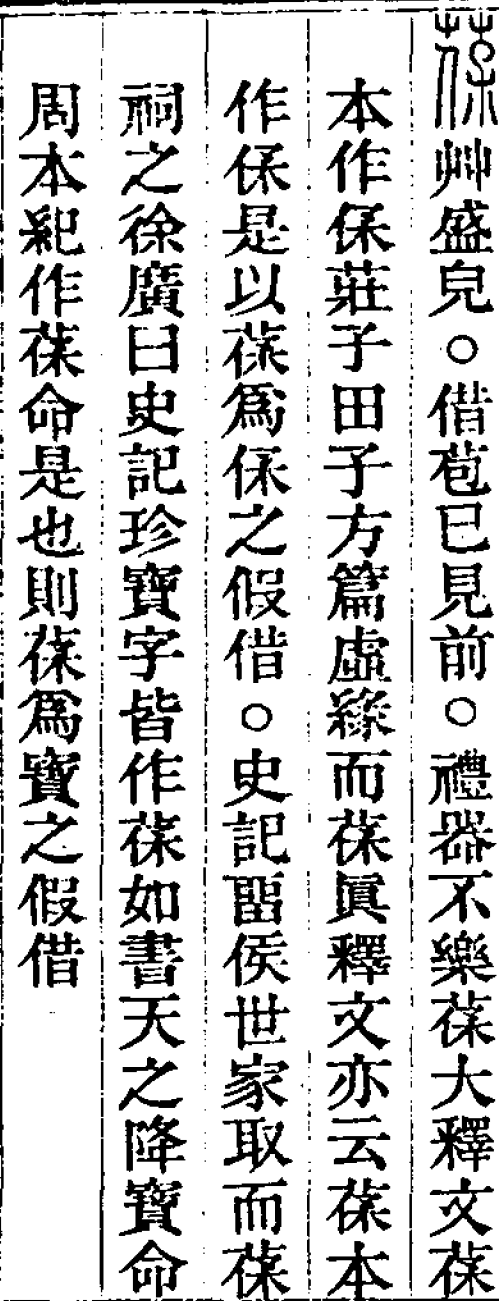 葆艸盛皃○借苞已見前○禮器不樂葆大釋文葆
本作保莊子田子方篇虛緣而葆眞釋文亦云葆本
作保是以葆爲保之假借○史記畱侯世家取而葆
祠之徐廣曰史記珍寶字皆作葆如書天之降寶命
周本紀作葆命是也則葆爲寶之假借